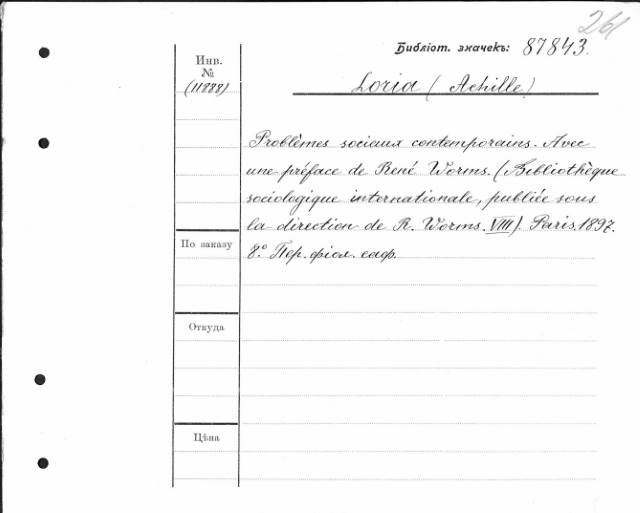 261
Библіот. значекъ: 87843.
Инв.
№
(11888)
Loria (Achille)
Problèmes sociaux contemporains. Avec
une préface de René Worms. (Bibliothèque
sociologique internationale, publiée sous
la direction de R. Worms. VIII). Paris. 1897.
8.° Пер. фіол. саф.
По заказу
Откуда
Цѣна